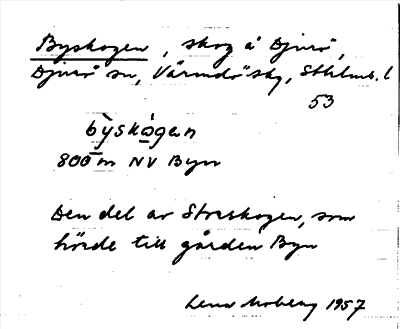 Byskogen, skog å Djurö,
Djurö sn, Värmdö skg, Sthlms. l
53
bỳskógan
800 m NV Byn
Den del av Storskogen, som
hörde till gården Byn
Lena Moberg 1957